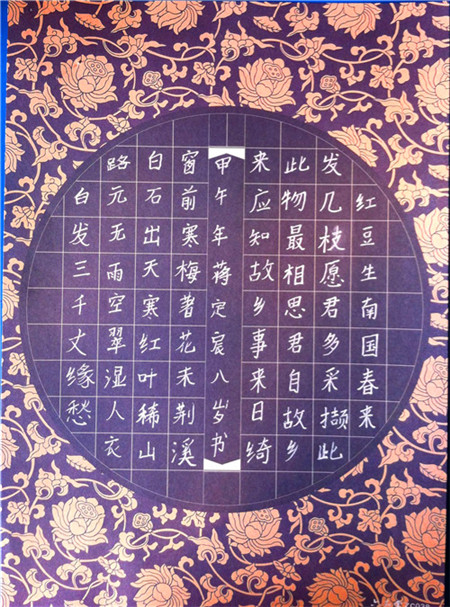 红豆生南国春来
发几枝愿君多采撷此
此物最相思君自故乡
来应知故乡事来日绮
甲午年蒋定宸八岁书
窗前寒梅著花未荆溪
白石出天寒红叶稀山
路元无雨空翠湿人衣
白发三千丈缘愁